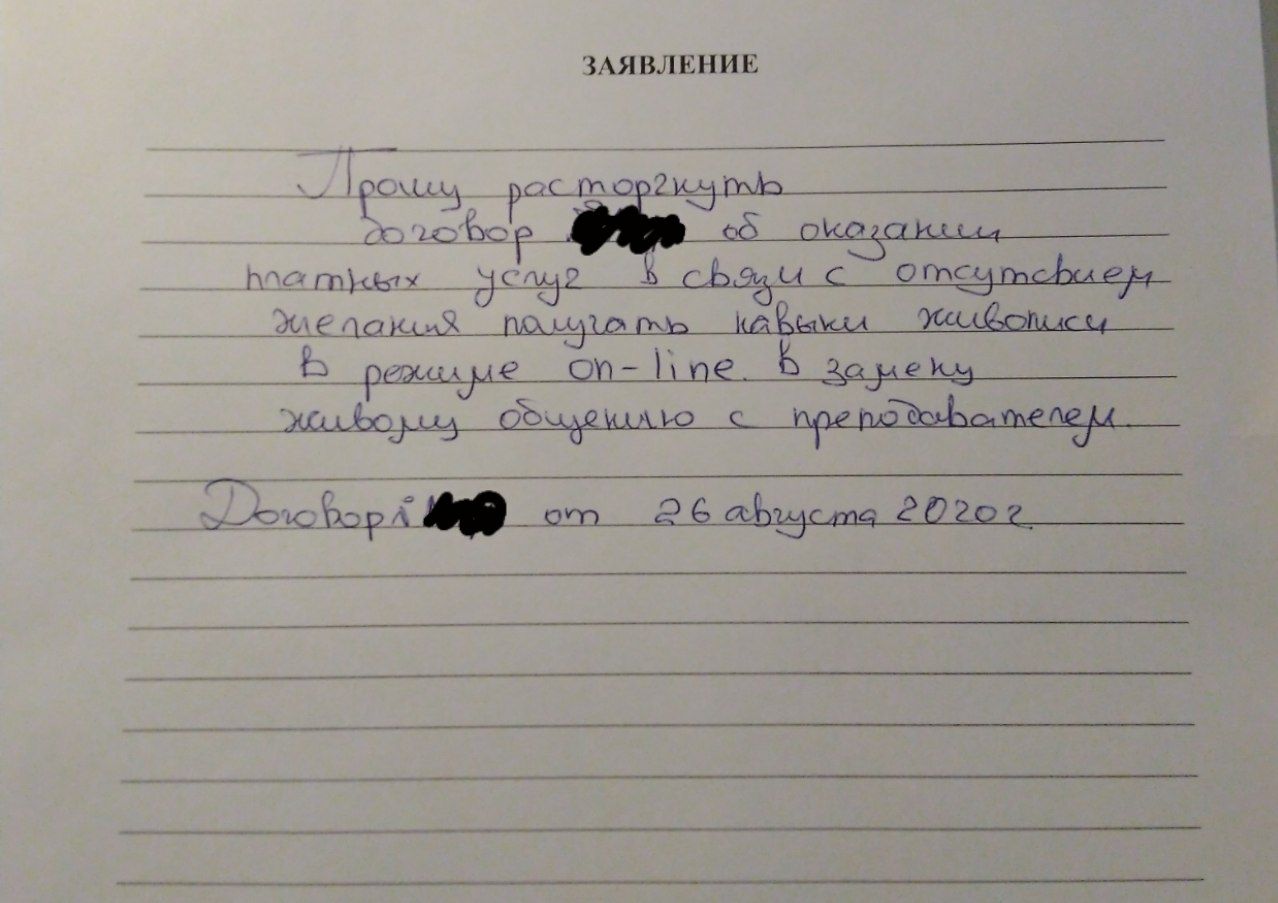 ЗАЯВЛЕНИЕ
Прошу расторгнуть
договор об оказании
платных услуг в связи с отсутсвием
желания получать навыки живописи
в режиме on-line. в замену
живому общению с преподавателем.
Договор от 26 августа 2020г